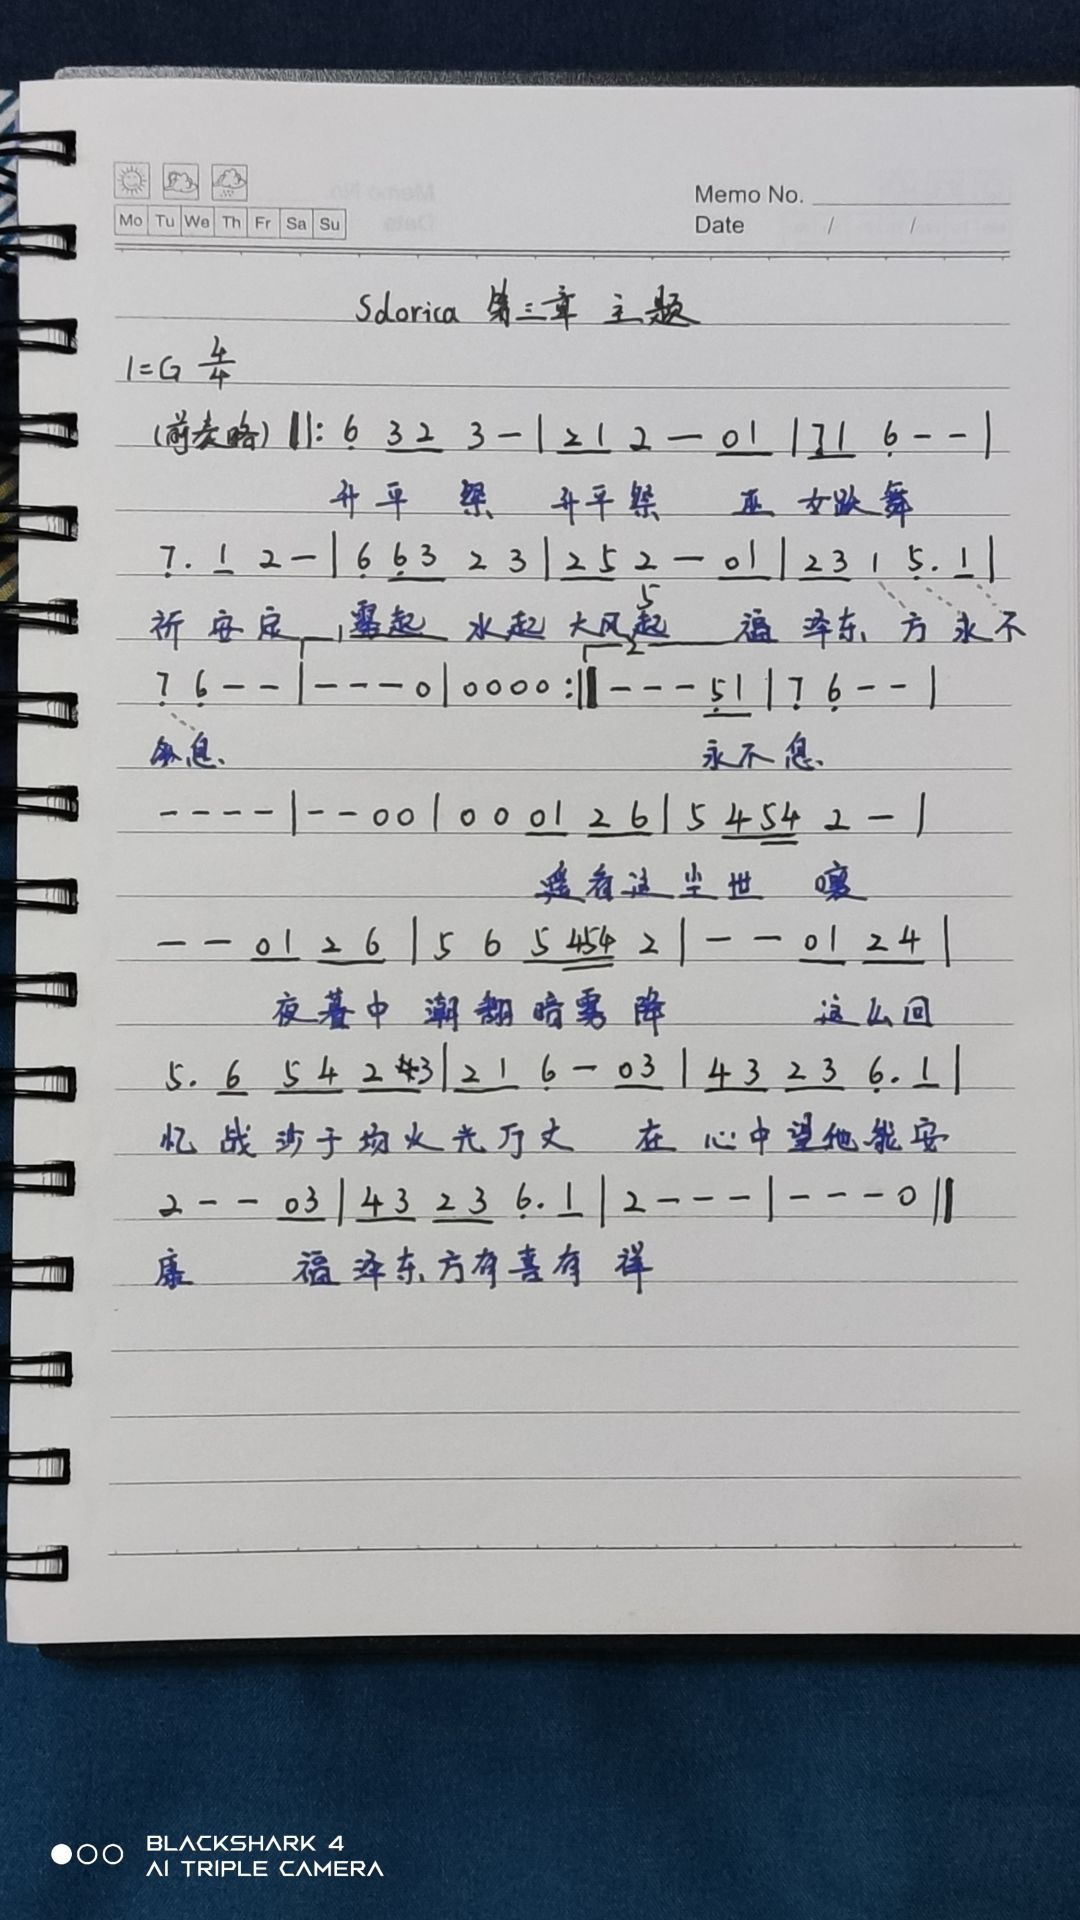 Mo Tu We Th Fr Sa Su
Memo No.
Date / /
Sdorica 第三章 主题
1=G 4/4
(前奏略) ‖: 6 32 3 - | 21 2 - 01 | 71 6 - - |
升平 祭 升平祭 巫 女跃舞
7. 1 2 - | 6 63 2 3 | 25 2 - 01 | 23 1 5. 1 |
5
祈安定 雾起 水起 大风起 福 泽东 方永不
2
7 6 - - | - - - 0 | 0 0 0 0 :‖ - - - 51 | 7 6 - - |
息 永不息
- - - - | - - 0 0 | 0 0 01 26 | 5 454 2 - |
遥看这尘世 嚷
- - 01 26 | 5 6 5454 2 | - - 01 24 |
夜暮中 潮翻暗雾降 这么回
5. 6 54 2 3 | 21 6 - 03 | 43 23 6. 1 |
忆战沙于场火光万丈 在 心中望他能安
2 - - 03 | 43 23 6. 1 | 2 - - - | - - - 0 ‖
康 福泽东方有喜有祥
BLACKSHARK 4
AI TRIPLE CAMERA